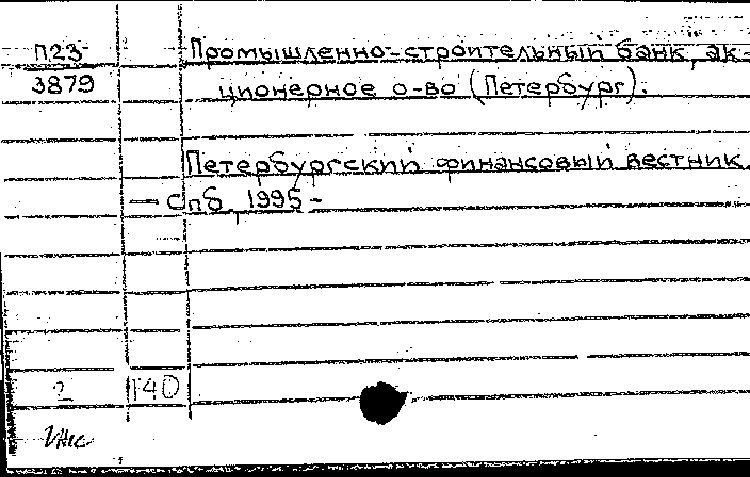 П23 Промышленно-строительный банк, ак-
3879 ционерное о-во (Петербург).
Петербургский финансовый вестник.
— Спб, 1995-
2 140